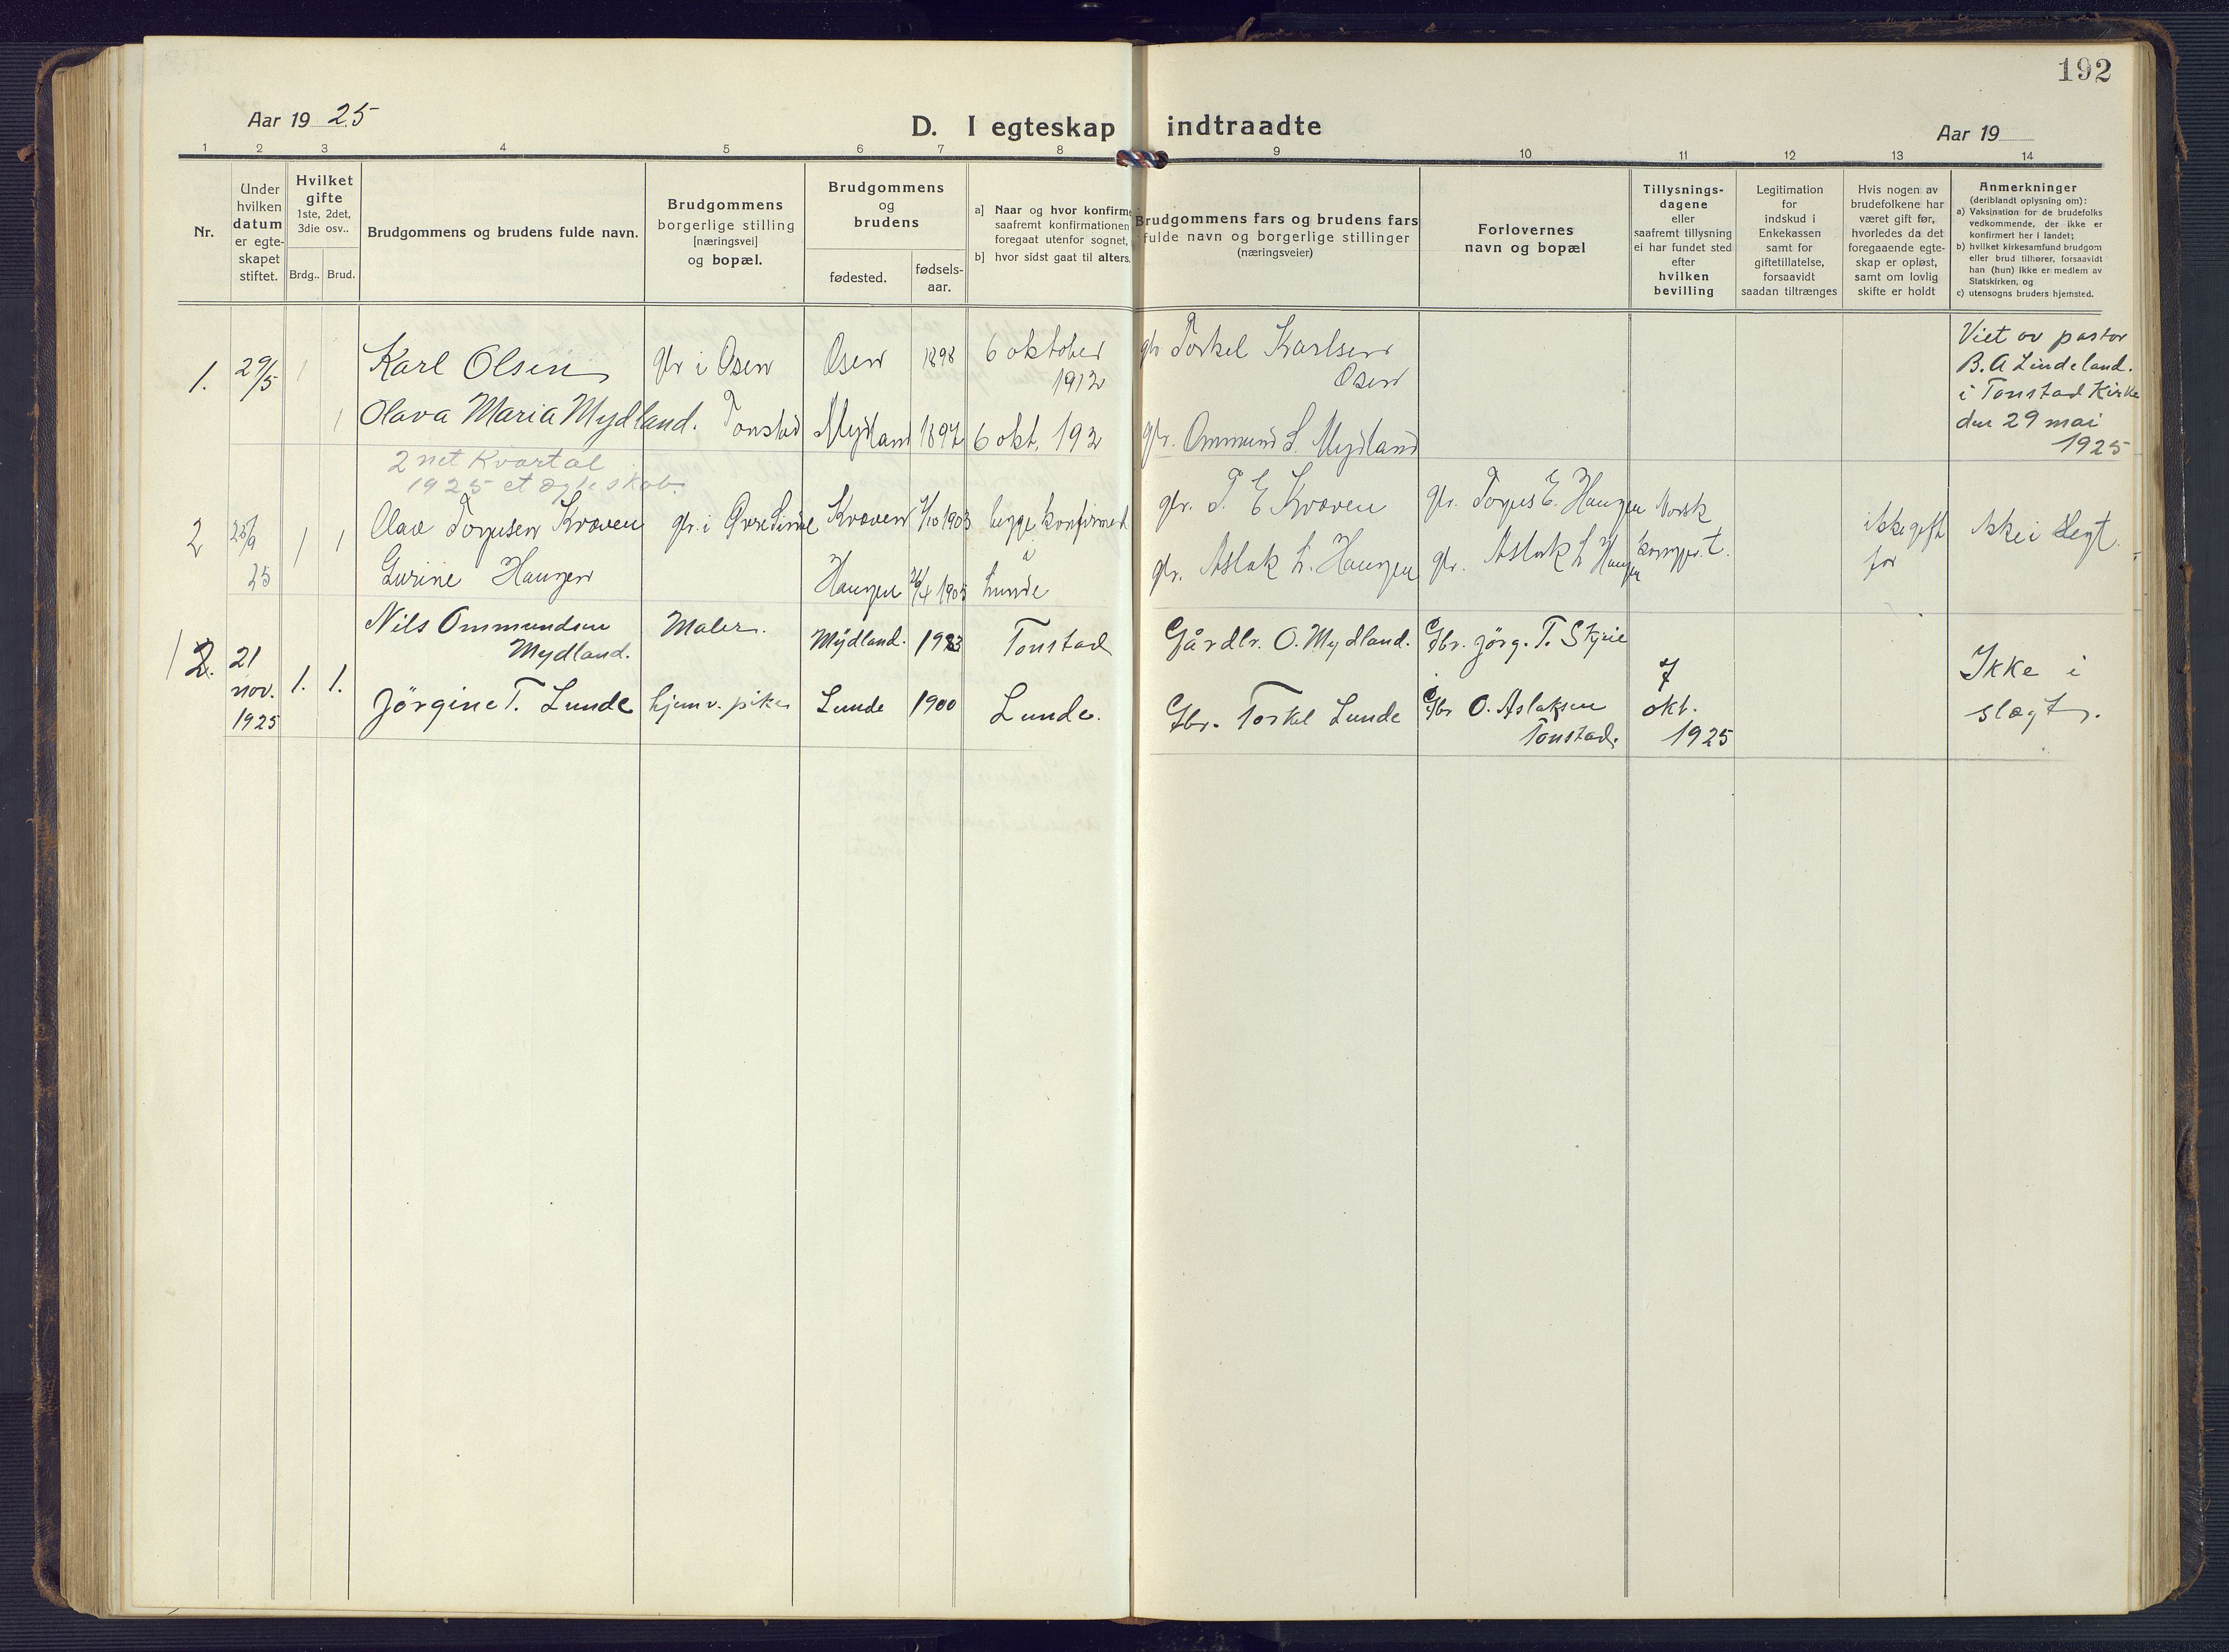 192
Aar 19 25
D. I egteskap indtraadte
Aar 19
1 2 3 4 5 6 7 8 9 10 11 12 13 14
Nr.
Under
hvilken
datum
er egte-
skapet
stiftet.
Hvilket
gifte
1ste, 2det,
3die osv..
Brdg.. Brud.
Brudgommens og brudens fulde navn.
Brudgommens
borgerlige stilling
[næringsvei]
og bopæl.
Brudgommens
og
brudens
fødested.
fødsels-
aar.
a] Naar og hvor konfirme
saafremt konfirmationen
foregaat utenfor sognet,
b] hvor sidst gaat til alters.
Brudgommens fars og brudens fars
fulde navn og borgerlige stillinger
(næringsveier)
Forlovernes
navn og bopæl
Tillysnings-
dagene
eller
saafremt tillysning
ei har fundet sted
efter
hvilken
bevilling
Legitimation
for
indskud i
Enkekassen
samt for
giftetillatelse,
forsaavidt
saadan tiltrænges
Hvis nogen av
brudefolkene har
været gift før,
hvorledes da det
foregaaende egte-
skap er opløst,
samt om lovlig
skifte er holdt
Anmerkninger
(deriblandt oplysning om):
a) Vaksination for de brudefolks
vedkommende, der ikke er
konfirmert her i landet;
b) hvilket kirkesamfund brudgom
eller brud tilhører, forsaavidt
han (hun) ikke er medlem av
Statskirken, og
c) utensogns bruders hjemsted.
1. 29/5 1 Karl Olsen gbr i Osen Osen 1898 6 oktober
1912
gbr Torkel Karlsen
Osen
Viet av pastor
B. A Lindeland.
i Tonstad Kirke
den 29 mai
1925
1 Olava Maria Mydland. Tonstad Mydland 1897 6 okt. 192 gbr. Ommund S. Mydland
2 net Kvartal
1925 et ægteskab.
2 25/9 25 1 1 Olav Torjusen Kvæven gbr. i Øvre Sirdal Kvæven 1/10 1903 begge konfirmert gbr. T. E Kvæven gbr. Torjus E. Haugen Norsk ikke gift før Ikke i slegt.
i
Gurine Haugen Haugen 26/4 1905 Lunde gbr. Aslak L. Haugen gbr. Aslak L Haugen
2. 21
nov.
1925
1. 1. Nils Ommundsen
Mydland.
Maler. Mydland. 1983 Tonstad Gårdbr. O. Mydland. Gbr. Jørg. T.
7
okt.
1925
Ikke i
slægt.
Jørgine T. Lunde hjemv. pike Lunde 1900 Lunde. Gbr. Torkel Lunde Gbr O. Aslaksen
Tonstad.